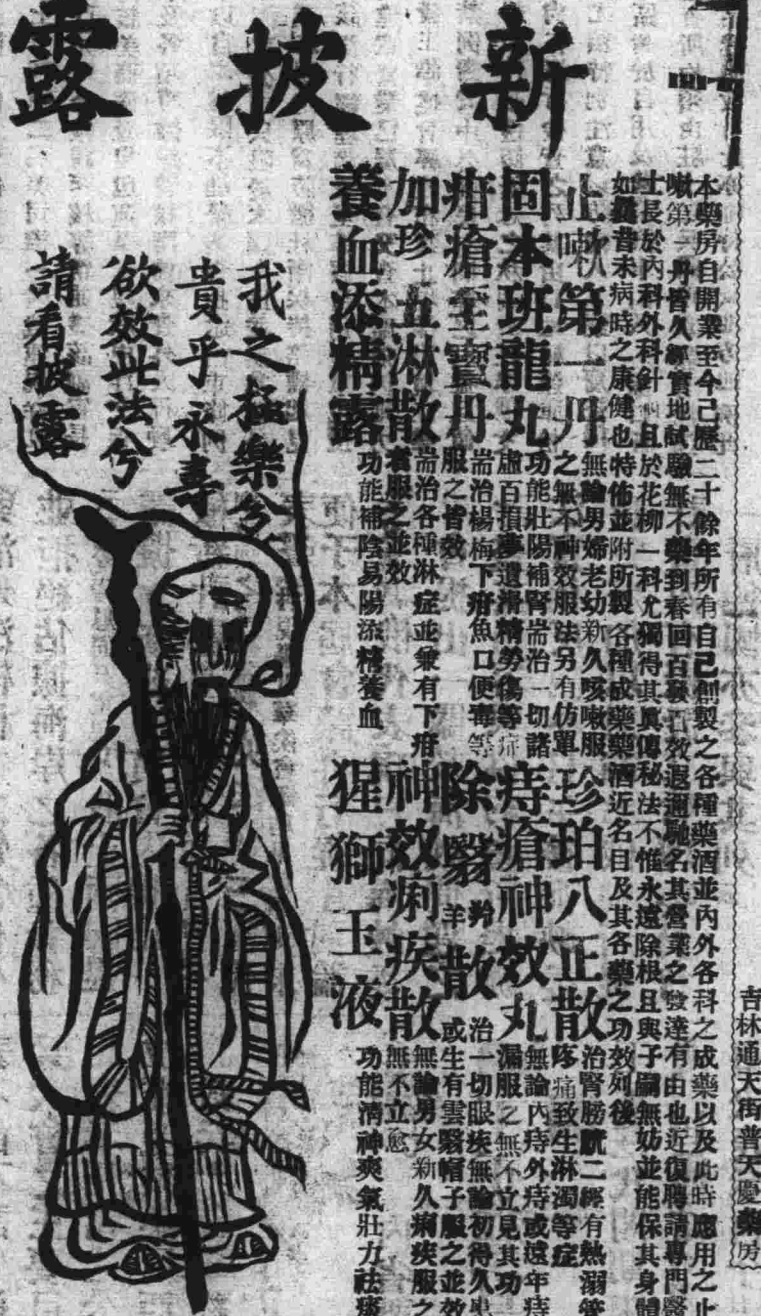 新披露
吉林通天街普天慶藥房
本藥房自開業至今已歷二十餘年所有自己創製之各種藥酒並內外各科之成藥以及此時應用之止
嗽第一丹皆久經實地試驗無不藥到春回百發百效遐邇馳名其營業之發達有由也近復聘請專門醫
士長於內科外科針 且於花柳一科尤獨得其眞傳秘法不惟永遠除根且與子嗣無妨並能保其身體
如 昔未病時之康健也特佈並附所製各種成藥藥酒近名目及其各藥之功效列後
止嗽第一丹
無論男婦老幼新久咳嗽服
之無不神效服法另有仿單
固本班龍丸
功能壯陽補腎耑治一切諸
虛百損夢遺滑精勞傷等症
疳瘡至寶丹
耑治楊梅下疳魚口便毒等
服之皆效
加珍五淋散
耑治各種淋症並兼有下疳
者服之並效
養血添精露
功能補陰易陽添精養血
珍珀八正散
治腎膀胱二經有熱溺管
疼痛致生淋濁等症
痔瘡神效丸
無論內痔外痔或遠年痔
漏服之無不立見其功
除翳羊羚散
治一切眼疾無論初得久患
或生有雲翳帽子服之並效
神效痢疾散
無論男女新久痢疾服之
無不立愈
猩獅玉液
功能清神爽氣壯力祛痰
我之極樂兮
貴乎永壽
欲效此法兮
請看披露